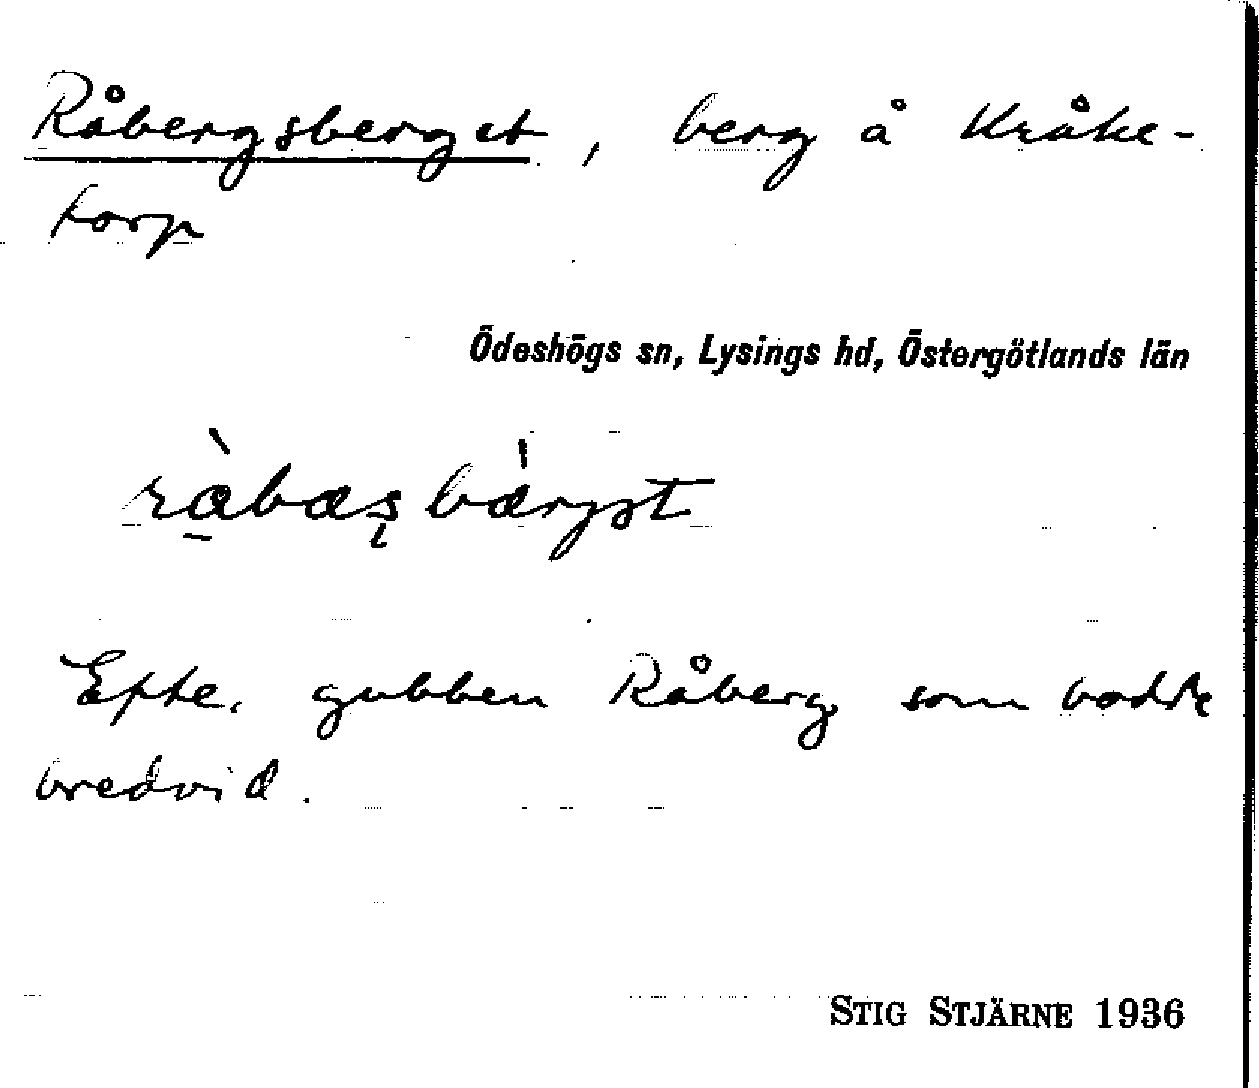 Råbergsberget, berg å Kråke-
torp
Ödeshögs sn, Lysings hd, Östergötlands län
Efte. gubben Råberg som bodde
bredvid.
STIG STJÄRNE 1936